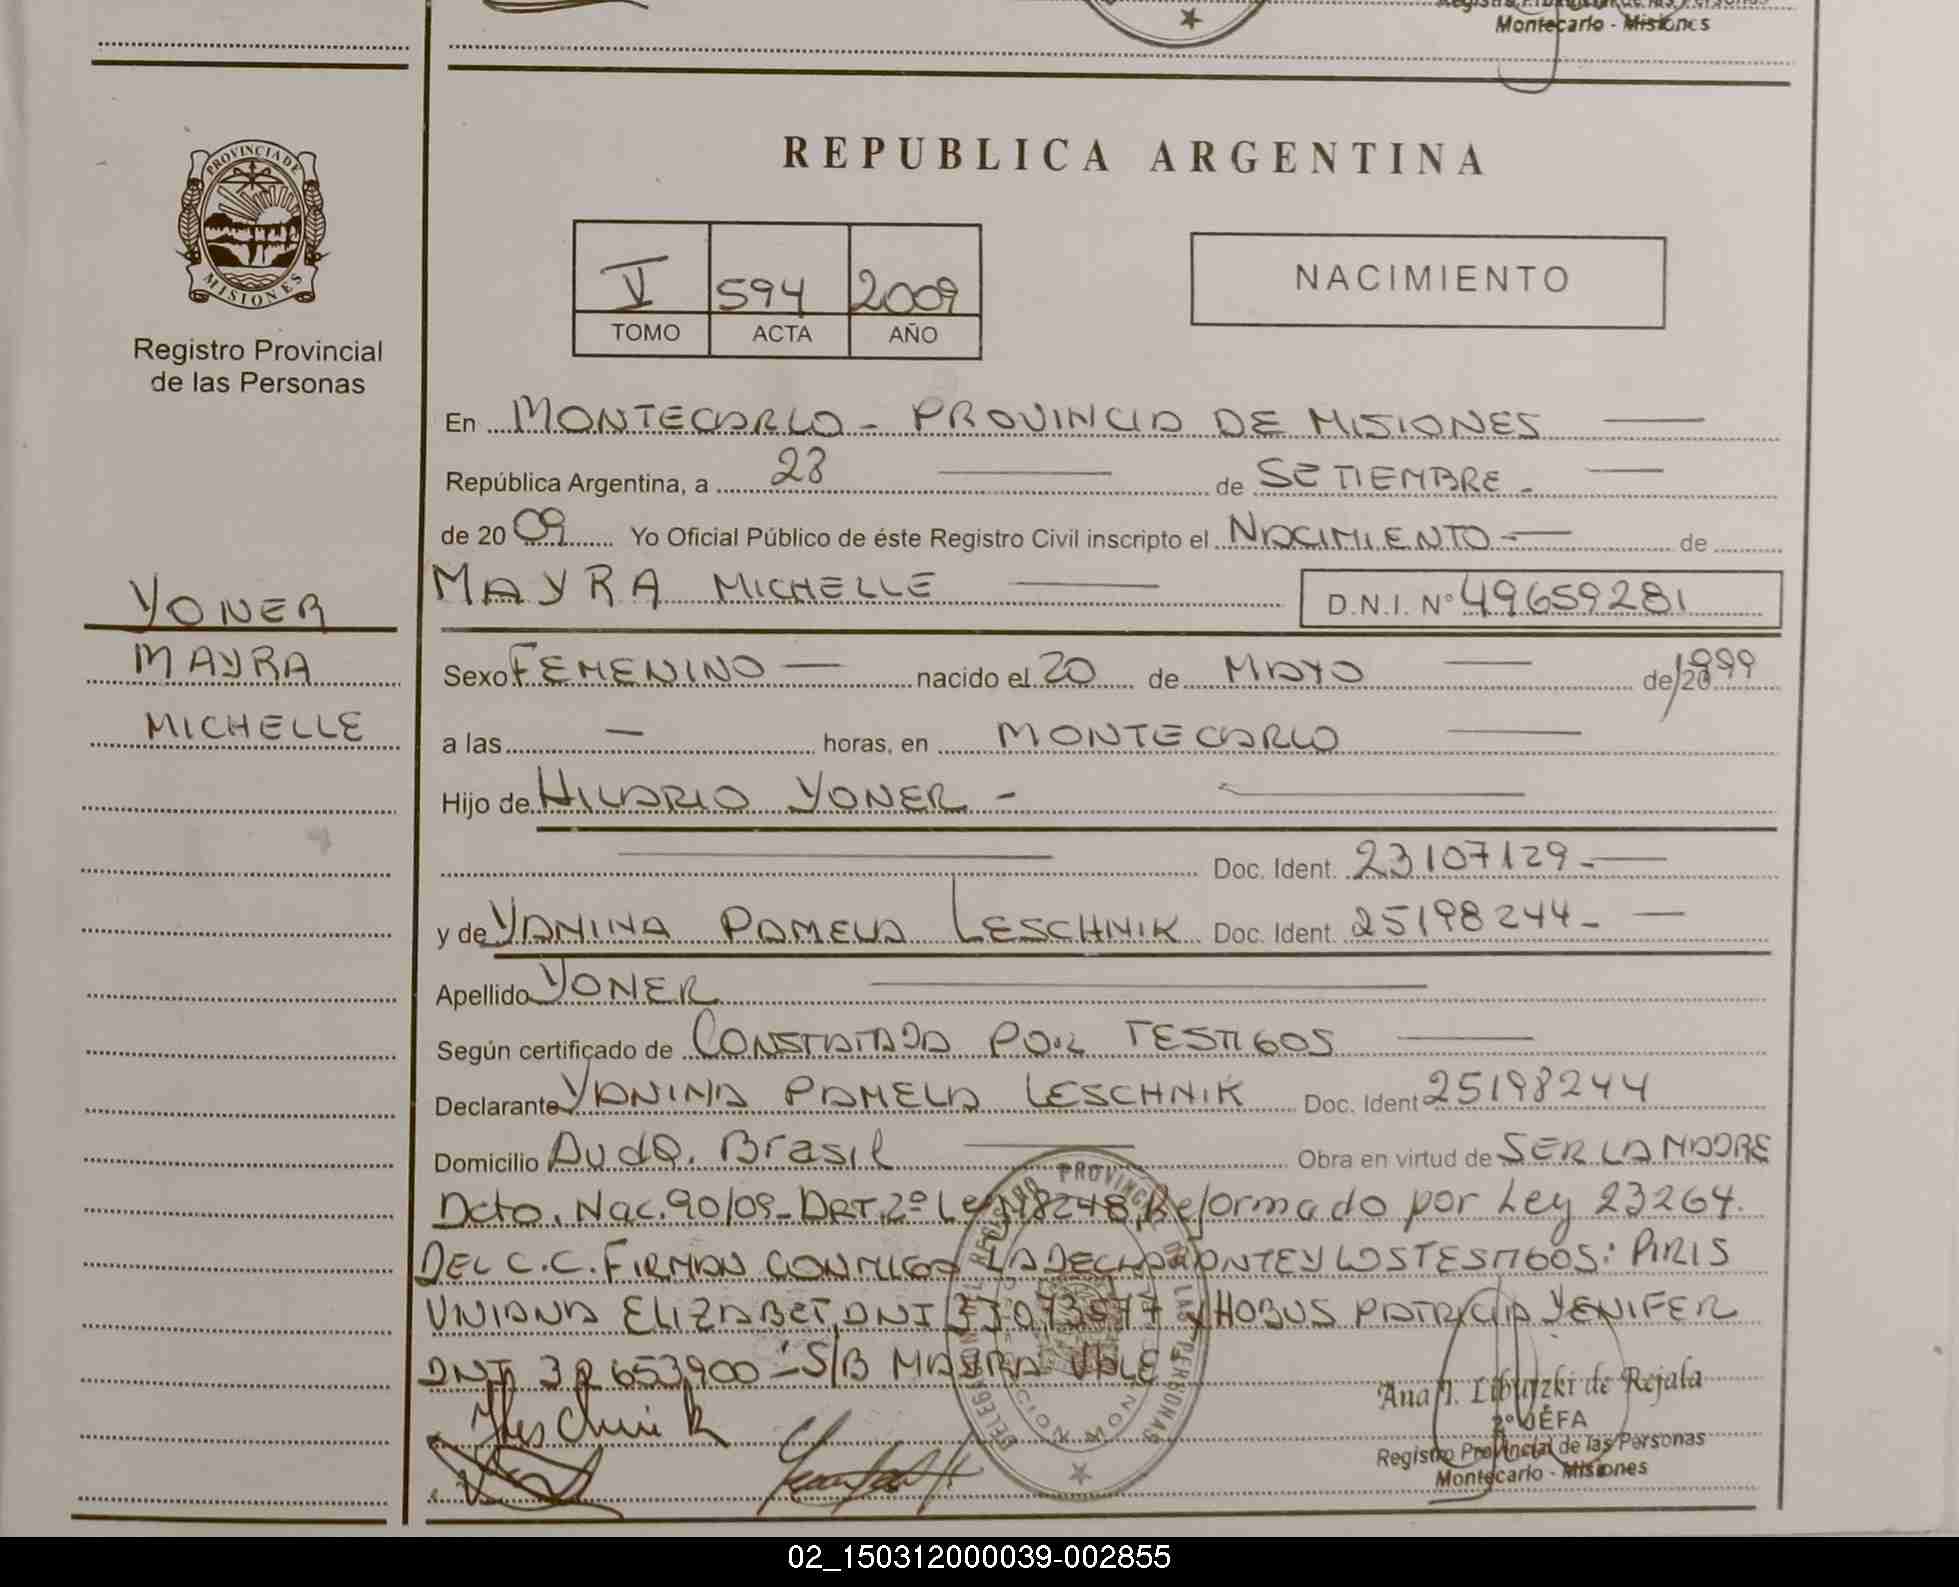 Montecarlo - Misiones
PROVINCIA DE
MISIONES
Registro Provincial
de las Personas
YONER
MAYRA
MICHELLE
REPUBLICA ARGENTINA
V 594 2009
TOMO ACTA AÑO
NACIMIENTO
En MONTECARLO - PROVINCIA DE MISIONES
República Argentina, a 28 de SETIEMBRE -
de 20 09 Yo Oficial Público de éste Registro Civil inscripto el NACIMIENTO - de
MAYRA MICHELLE D.N.I. N° 49659281
Sexo FEMENINO nacido el 20 de MAYO de 20 1999
a las — horas, en MONTECARLO
Hijo de HILARIO YONER -
Doc. Ident. 23107129 -
y de YANINA PAMELA LESCHNIK Doc. Ident. 25198244 -
Apellido YONER
Según certificado de CONSTATADA POR TESTIGOS
Declarante YANINA PAMELA LESCHNIK Doc. Ident 25198244
Domicilio Avda. Brasil Obra en virtud de SER LA MADRE
Dcto. Nac. 90/09 - ART. 2º Ley 18248, Reformado por Ley 23264.
DEL C.C. FIRMAN CONMIGO LA DECLARANTE Y LOS TESTIGOS: PIRIS
VIVIANA ELIZABET, DNI Y HOBUS PATRICIA YENIFER
DNI 32653900 - S/B MAYRA VALE
Ana I. de Rejala
2º JEFA
Registro Provincial de las Personas
Montecarlo - Misiones
02_150312000039-002855